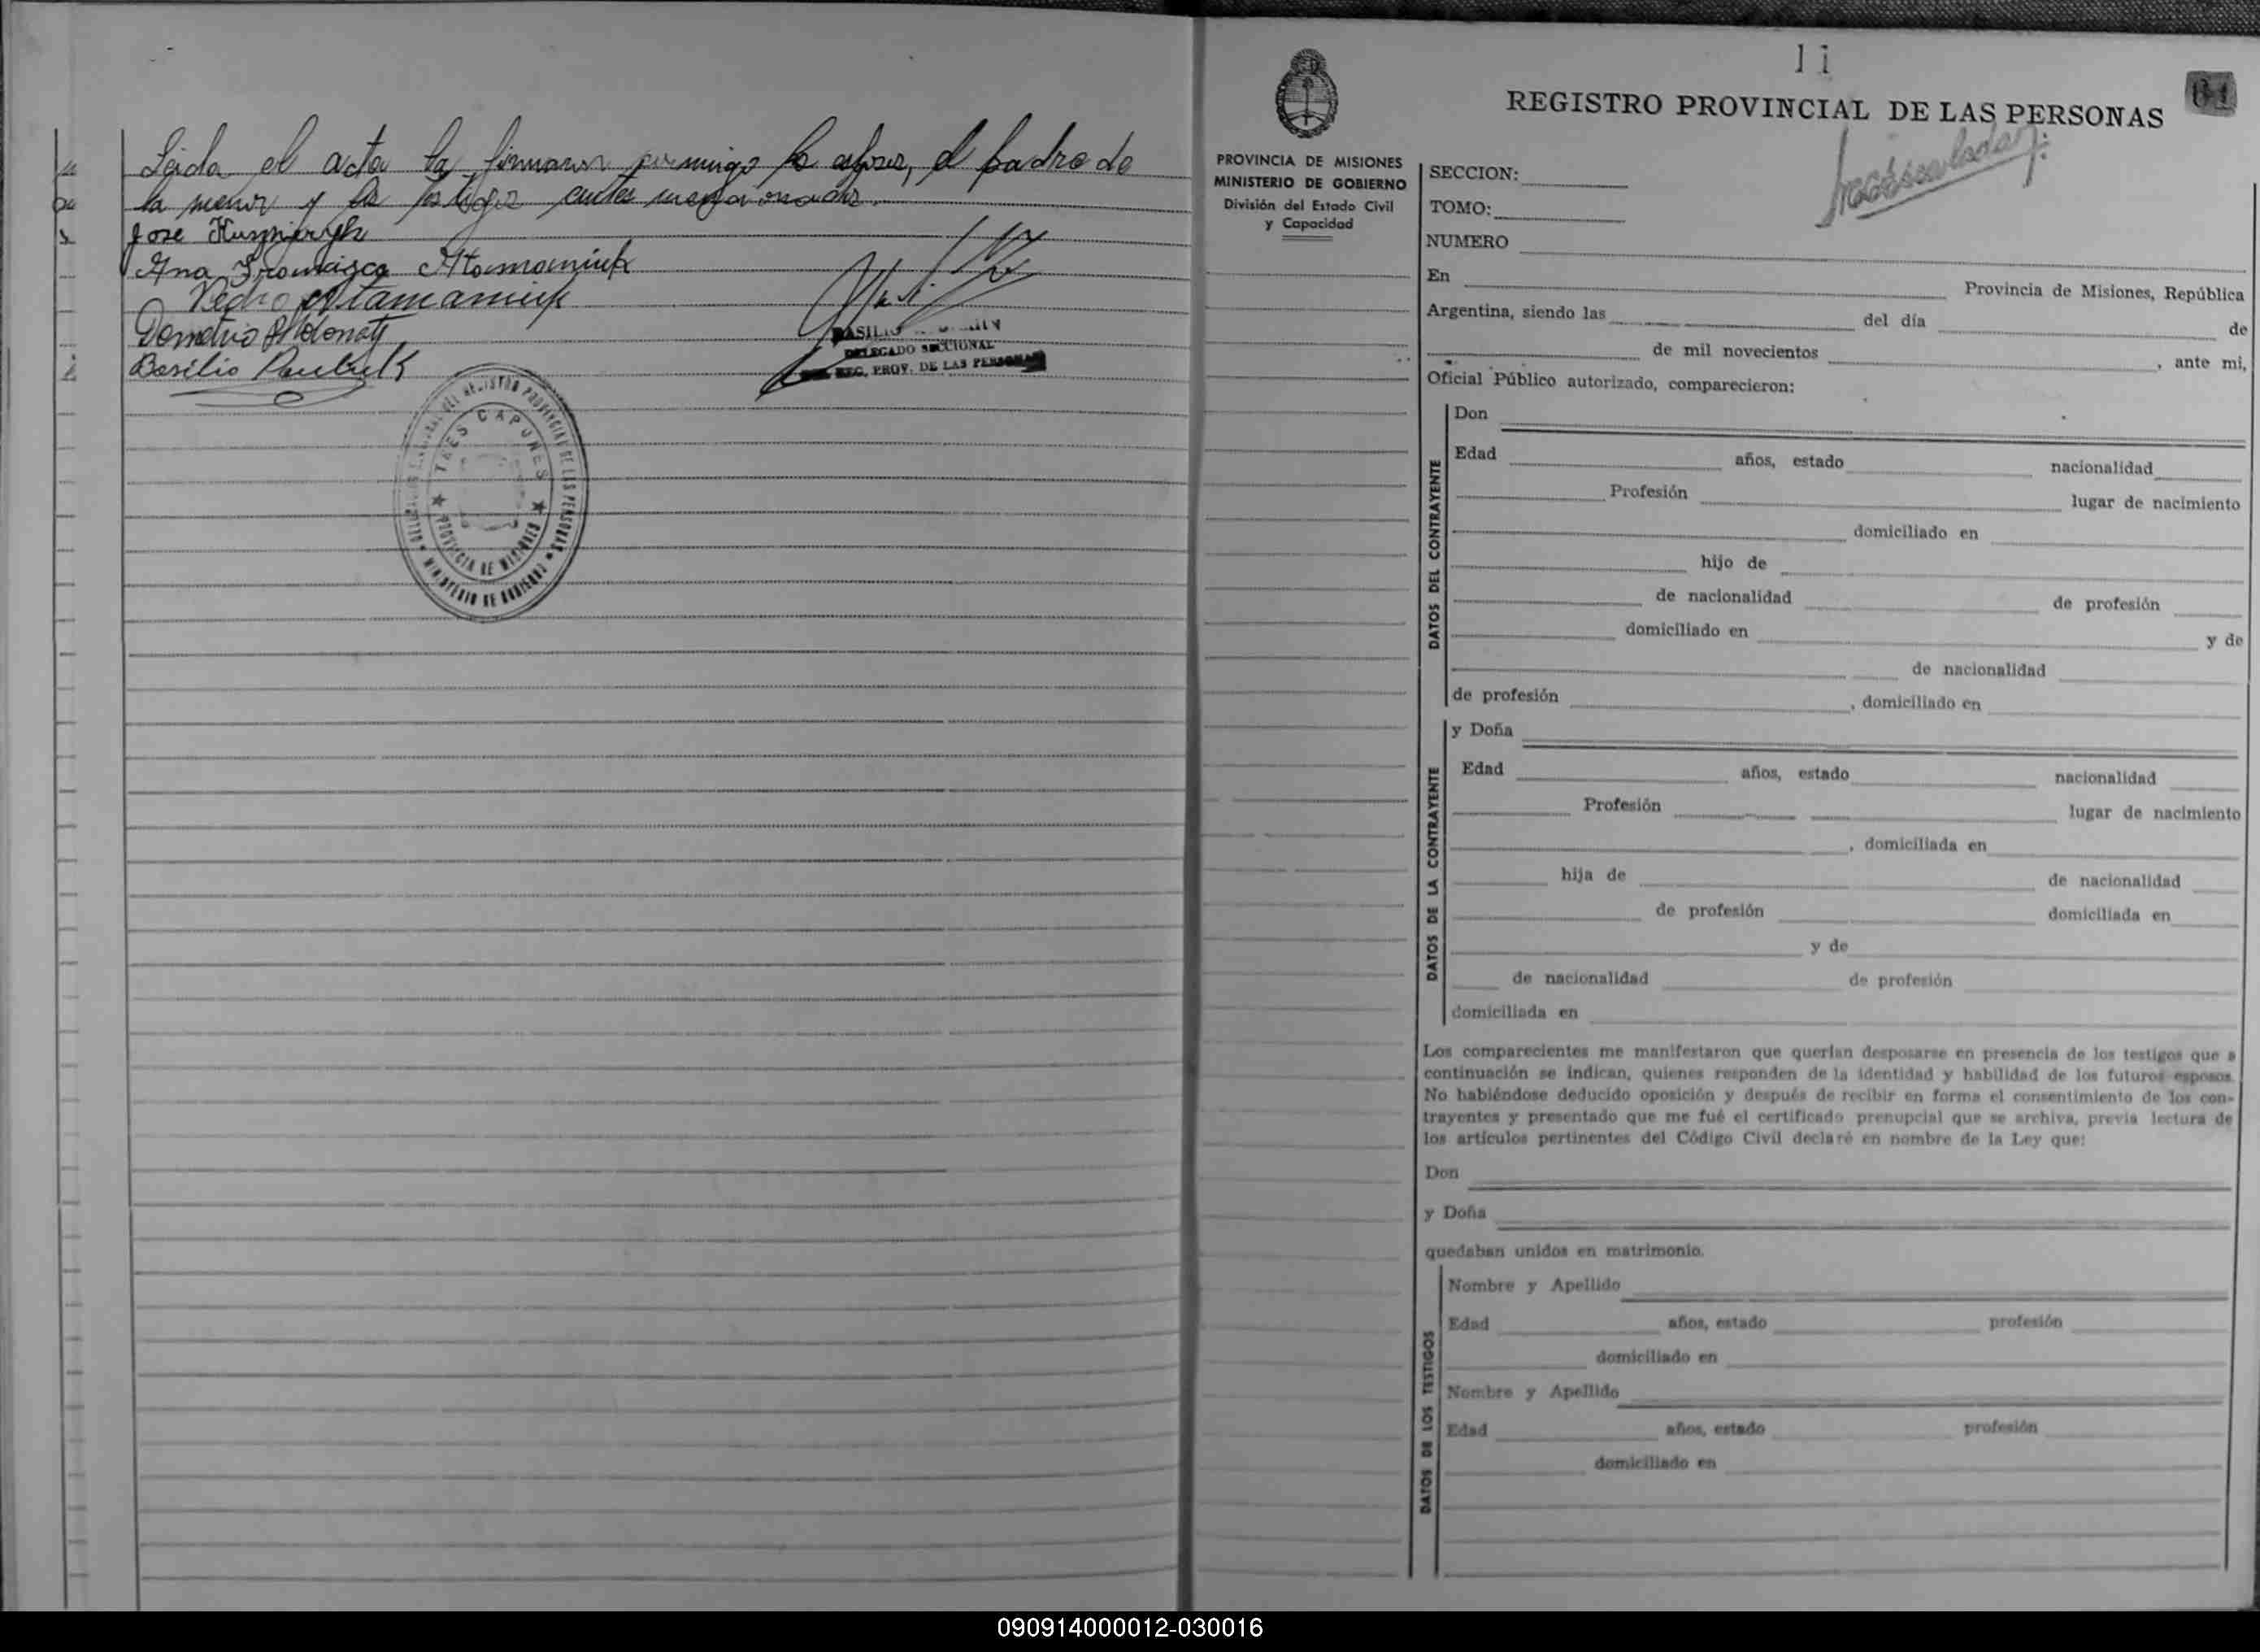 Leida el acta la firmaron conmigo los esposos, el padre de
la menor y los testigos antes mencionados.
Jose
Ana Francisca Atamaniuk
Pedro Atamaniuk
Demetrio
Basilio Pauluk
BASILIO
DELEGADO SECCIONAL
REG. PROV. DE LAS PERSONAS
TRES CAPONES
PROVINCIA DE MISIONES
REGISTRO PROVINCIAL DE LAS PERSONAS
MINISTERIO DE GOBIERNO
11
REGISTRO PROVINCIAL DE LAS PERSONAS
PROVINCIA DE MISIONES
MINISTERIO DE GOBIERNO
División del Estado Civil
y Capacidad
SECCION:
TOMO:
NUMERO
En Provincia de Misiones, República
Argentina, siendo las del día de
de mil novecientos , ante mi,
Oficial Público autorizado, comparecieron:
DATOS DEL CONTRAYENTE
Don
Edad años, estado nacionalidad
Profesión lugar de nacimiento
domiciliado en
hijo de
de nacionalidad de profesión
domiciliado en y de
de nacionalidad
de profesión , domiciliado en
DATOS DE LA CONTRAYENTE
y Doña
Edad años, estado nacionalidad
Profesión lugar de nacimiento
, domiciliada en
hija de de nacionalidad
de profesión domiciliada en
y de
de nacionalidad de profesión
domiciliada en
Los comparecientes me manifestaron que querían desposarse en presencia de los testigos que a
continuación se indican, quienes responden de la identidad y habilidad de los futuros esposos.
No habiéndose deducido oposición y después de recibir en forma el consentimiento de los con-
trayentes y presentado que me fué el certificado prenupcial que se archiva, previa lectura de
los artículos pertinentes del Código Civil declaré en nombre de la Ley que:
Don
y Doña
quedaban unidos en matrimonio.
DATOS DE LOS TESTIGOS
Nombre y Apellido
Edad años, estado profesión
domiciliado en
Nombre y Apellido
Edad años, estado profesión
domiciliado en
090914000012-030016